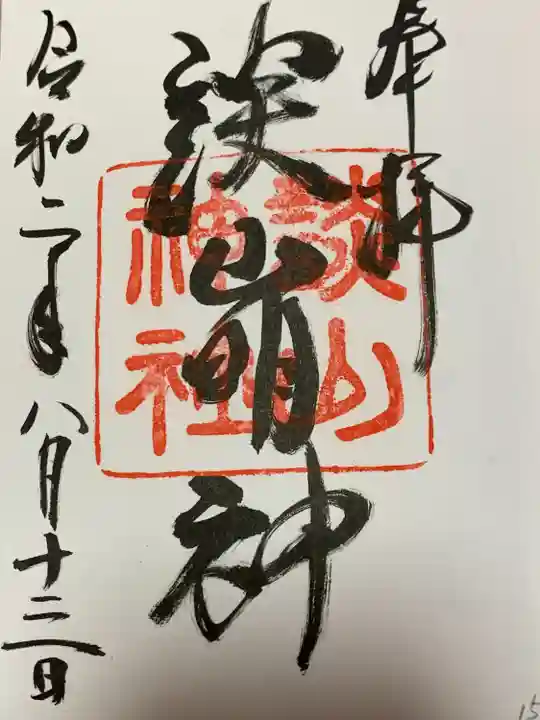 奉拝
談山明神
談山
神社
令和二年八月十三日
15